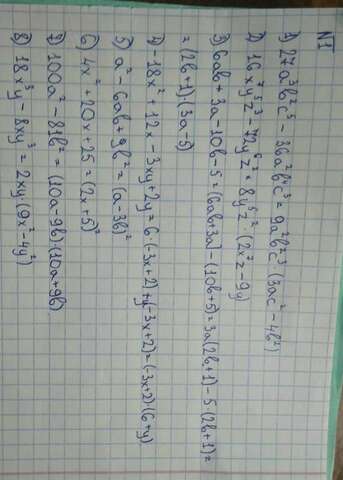 N1
1) 27a³b²c⁵ - 36a²b⁴c³ = 9a²b²c³(3ac² - 4b²)
2) 16x⁷y⁵z³ - 72y⁶z² = 8y⁵z² · (2x⁷z - 9y)
3) 6ab + 3a - 10b - 5 = (6ab + 3a) - (10b + 5) = 3a(2b + 1) - 5 · (2b + 1) =
= (2b + 1) · (3a - 5)
4) -18x² + 12x - 3xy + 2y = 6 · (-3x + 2) + y(-3x + 2) = (-3x + 2) · (6 + y)
5) a² - 6ab + 9b² = (a - 3b)²
6) 4x² + 20x + 25 = (2x + 5)²
7) 100a² - 81b² = (10a - 9b) · (10a + 9b)
8) 18x³y - 8xy³ = 2xy · (9x² - 4y²)